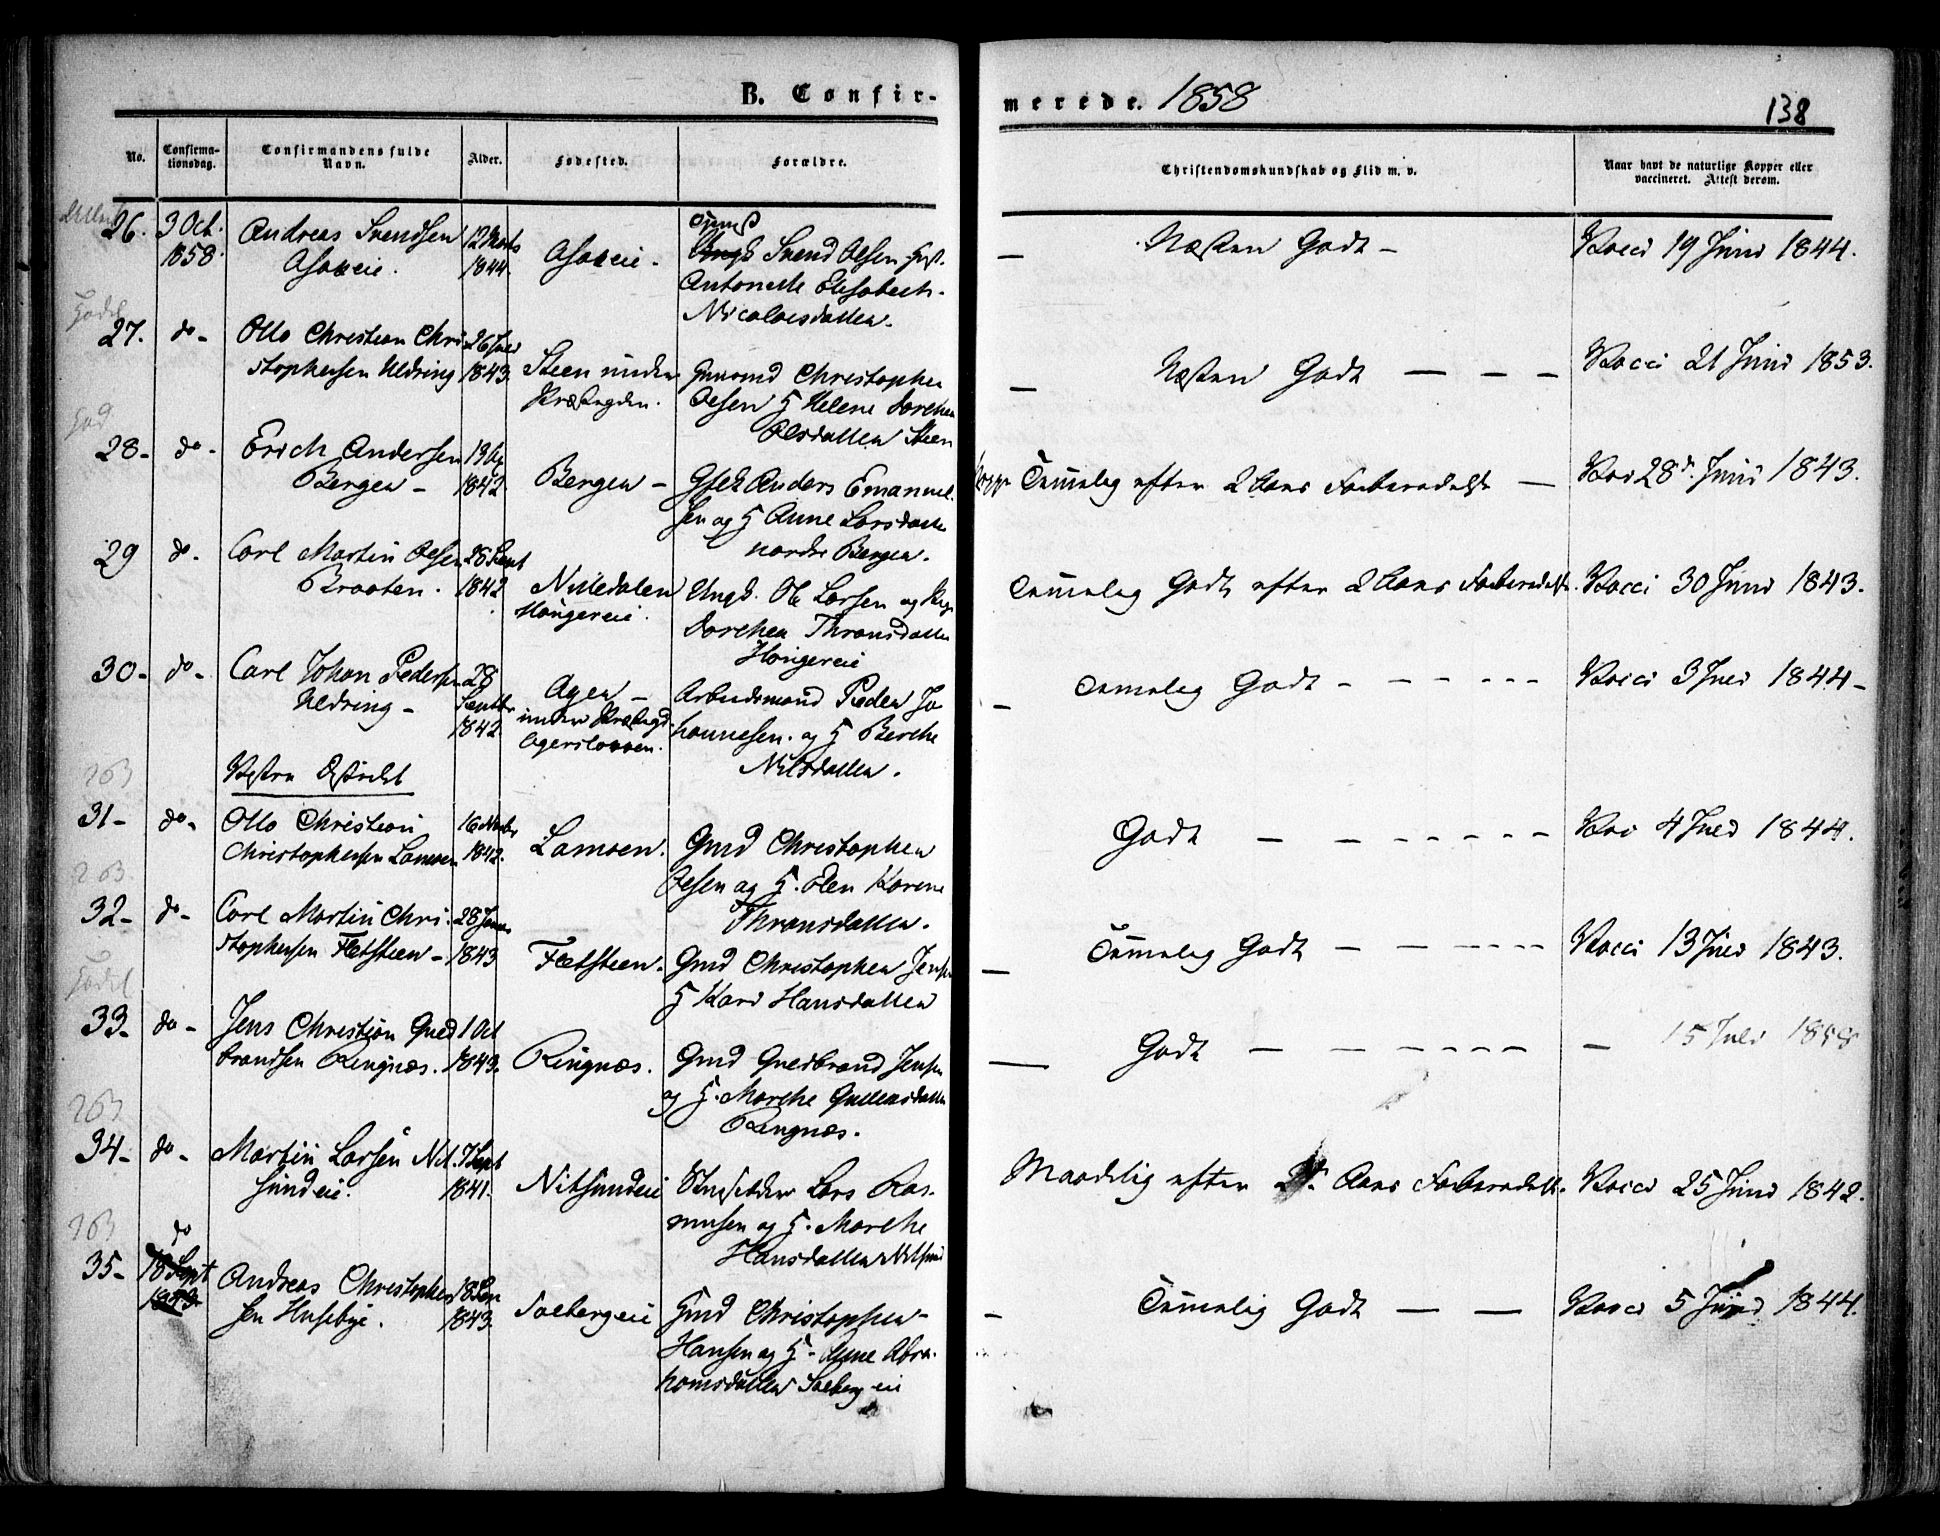 B. Confir-
merede. 1858
138
No.
Confirma-
tionsdag.
Confirmandens fulde
Navn.
Alder.
Fødested.
Forældre.
Christendomskundskab og Flid m. v.
Naar havt de naturlige Kopper eller
vaccineret. Attest derom.
26. 3 Oct. 1858. Andreas Svendsen 12 Marts 1844. Svend Olsen
Antonette Elisabeth
Nicolaisdatter.
Næsten Godt - Vacci 19 Juni 1844.
27. do - Otto Christian Chri
stophersen Uldring 26 Juli 1843. Steen under
Præstegden. Gmand Christopher
Olsen & H Helene Dorthea
Olsdatter Steen
Næsten Godt - - - Vacci 21 Juni 1853.
28 - do - Erich Andersen
Bergen - 1842. Bergen - Anders Emanuel
sen og H Anne Larsdatter
nordre Bergen.
Temmelig efter 2 Aars Forberedelse - Vac 28d. Juni 1843.
29 do - Carl Martin Olsen
Braaten. 28 Sept 1842 Nittedalen
Ungk. Ole Larsen og Pige
Dorthea Thronsdatter
Temmelig Godt efter 2 Aars Forberedelse. Vacci 30 Juni 1843.
30 - do - Carl Johan Pedersen
Uldring - 28 Septbr 1842.
under Præstegd.
Arbeidsmand Peder Jo
hannesen. og H Berthe
Nilsdatter.
Temmelig Godt - - - - - Vacci 3 Juli 1844 -
Vestre District
31 - do - Otto Christian
Christophersen Lamoen 16 Novbr 1842. Lamoen. Gmd Christopher
Olsen og H. Elen Karine
Thronsdatter.
Godt - - - - - - - Vac 4 Juli 1844.
32 - do - Carl Martin Chri.
stophersen Fletsteen - 28 Januar 1843 Fletsteen. Gmd Christopher Jensen
H Kari Hansdatter
Temmelig Godt - - - - - - Vacci 13 Juli 1843.
33 - do - Jens Christian Guld
brandsen Ringnæs. 1 Oct 1843. Ringnæs. Gmd Guldbrand Jensen
og H. Marthe Gulliksdatter
Ringnæs.
Godt - - - - - - - 15 Juli
34 - do - Martin Larsen Nit.
sundeie. 7 Sept 1841. Nitsundeie Lars Ras-
musen og H. Marthe
Hansdatter Nitsund
Maadelig efter 2 Aars Forberedelse. Vacci 25 Juni 1842.
35 - do
18 Sept
1843 Andreas Christopher
sen Husebye. 18 Sep 1843. Solbergeie Gmd Christopher
Hansen og H - Anne Abra-
hamsdatter Solberg eie
Temmelig Godt - - Vacci 5 Juni 1844.